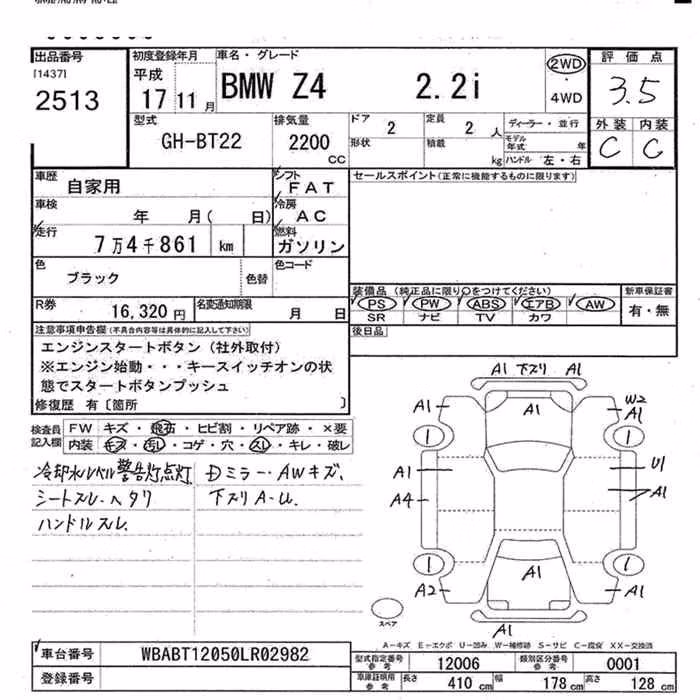 出品番号
[1437]
2513
初度登録年月
平成
17 11 月
車名・グレード
BMW Z4 2.2i
2WD
・
4WD
評価点
3.5
外装 内装
C C
型式
GH-BT22
排気量
2200
CC
ドア
2
定員
2 人
形状
積載
kg
ディーラー・並行
モデル年式 年
ハンドル 左・右
車歴
自家用
シフト
FAT
車検
年 月( 日)
冷房
AC
走行
7万4千861 km
燃料
ガソリン
色
ブラック
色替
色コード
R券
16,320 円
名変通知期限
月 日
セールスポイント(正常に機能するものに限ります)
装備品 (純正品に限り○をつけてください)
PS PW ABS エアB AW
SR ナビ TV カワ
新車保証書
有・無
後日品
注意事項申告欄(不具合内容等は具体的に記入して下さい)
エンジンスタートボタン(社外取付)
※エンジン始動・・・キースイッチオンの状
態でスタートボタンプッシュ
修復歴 有〔箇所 〕
検査員
記入欄
FW キズ・飛石・ヒビ割・リペア跡・×要
内装 キズ・汚れ・コゲ・穴・スレ・キレ・破レ
冷却水レベル警告灯点灯
シートスレ・ヘタリ
ハンドルスレ
Dミラー・AWキズ、
下スリA-U.
A1 下スリ A1
A1 A1 W2
A1
1 1
A1 U1
A4 A1
1 1
A2 A1 A1
A1
スペア
A-キズ E-エクボ U-凹み W-補修跡 S-サビ C-腐食 XX-交換済
車台番号
WBABT12050LR02982
登録番号
型式指定番号
参考
12006
類別区分番号
参考
0001
車庫証明用
参考
長さ 410 cm 幅 178 cm 高さ 128 cm